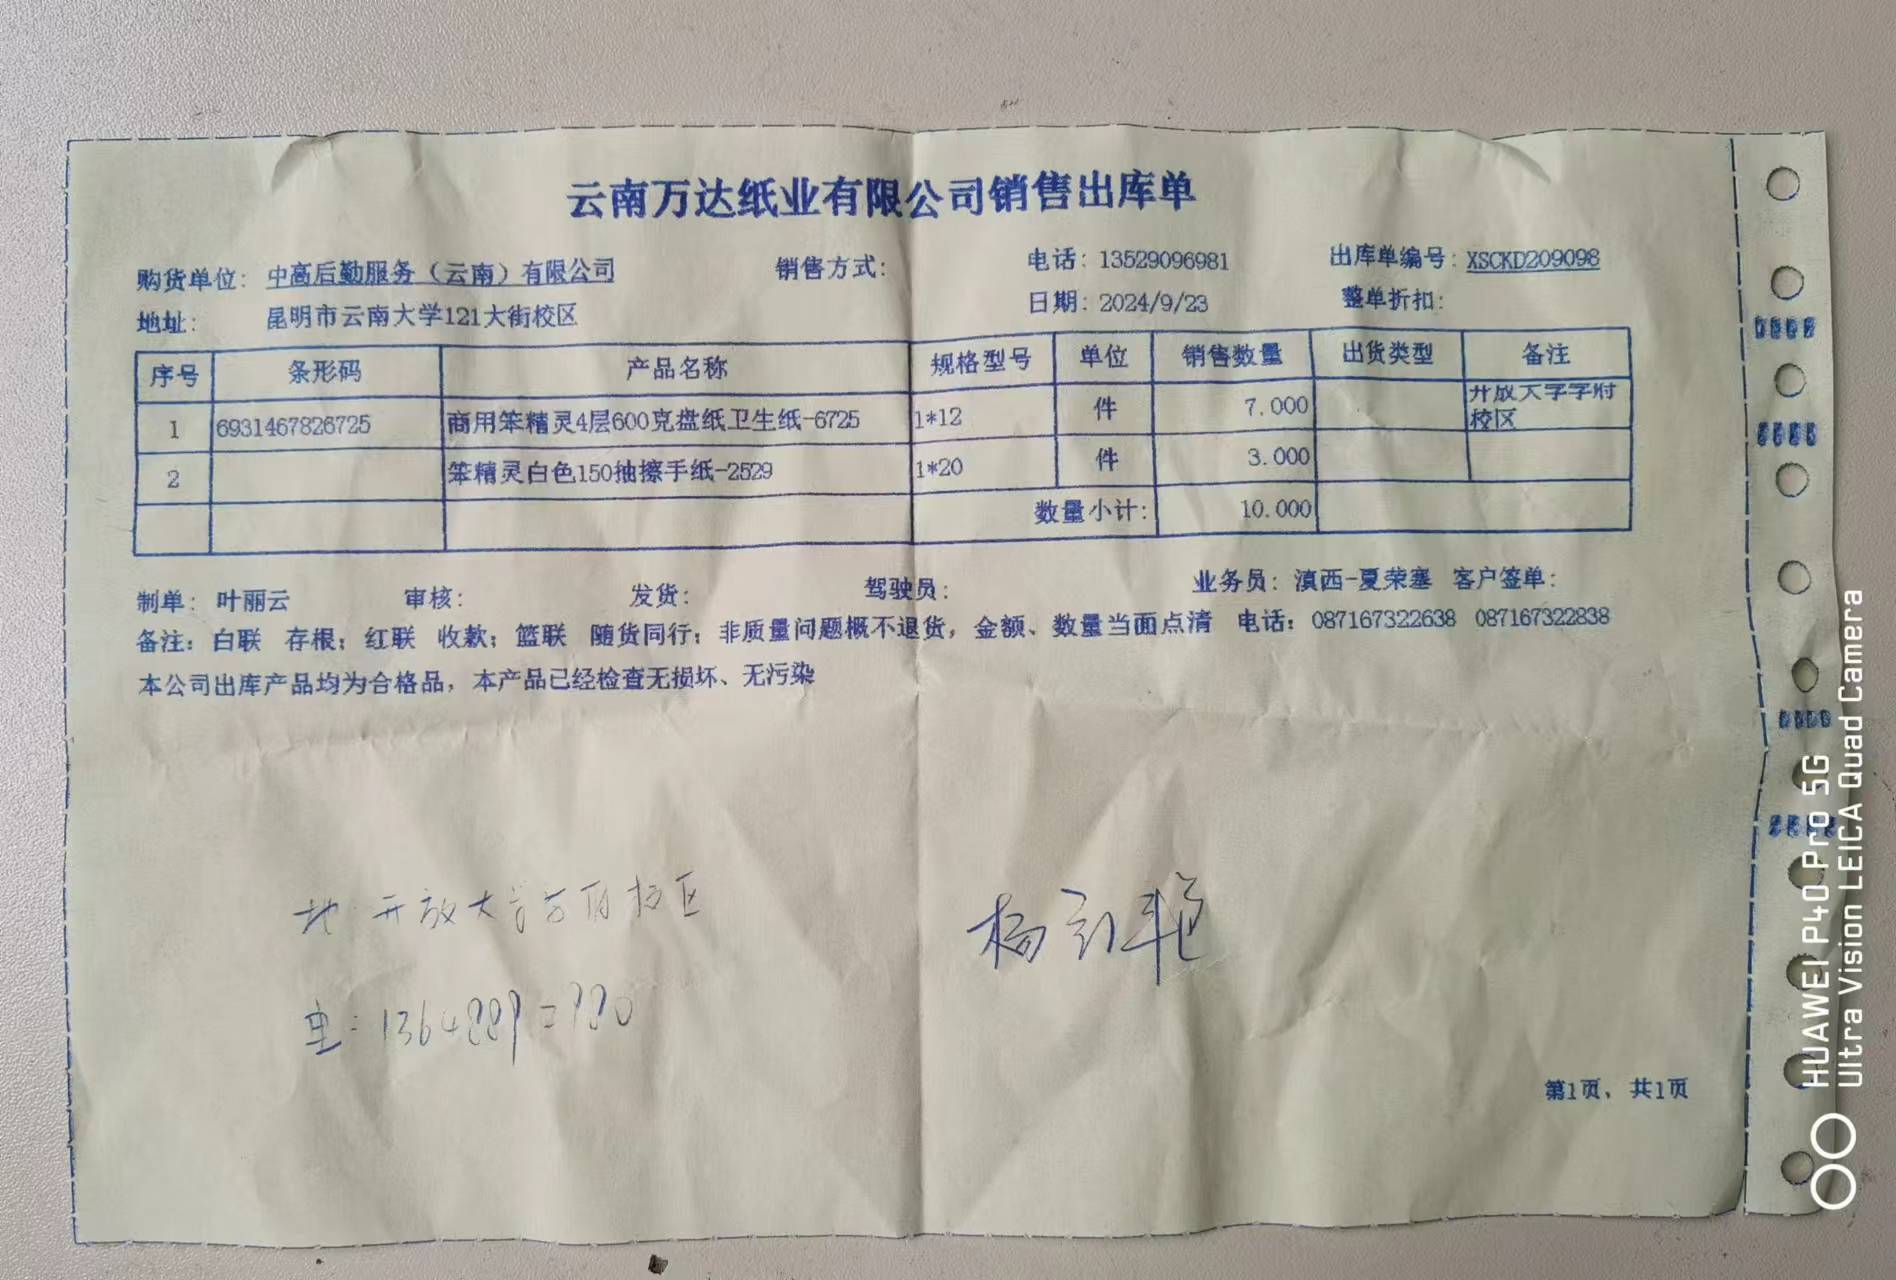 云南万达纸业有限公司销售出库单
购货单位: 中高后勤服务（云南）有限公司 销售方式: 电话: 13529096981 出库单编号: XSCKD209098
地址: 昆明市云南大学121大街校区 日期: 2024/9/23 整单折扣:
序号 条形码 产品名称 规格型号 单位 销售数量 出货类型 备注
1 6931467826725 商用笨精灵4层600克盘纸卫生纸-6725 1*12 件 7.000 开放大学学府校区
2 笨精灵白色150抽擦手纸-2529 1*20 件 3.000
数量小计: 10.000
制单: 叶丽云 审核: 发货: 驾驶员: 业务员: 滇西-夏荣塞 客户签单:
备注: 白联 存根; 红联 收款; 篮联 随货同行; 非质量问题概不退货, 金额、数量当面点清 电话: 087167322638 087167322838
本公司出库产品均为合格品, 本产品已经检查无损坏、无污染
地 开放大学学府校区
杨
第1页, 共1页
HUAWEI P40 Pro 5G
Ultra Vision LEICA Quad Camera